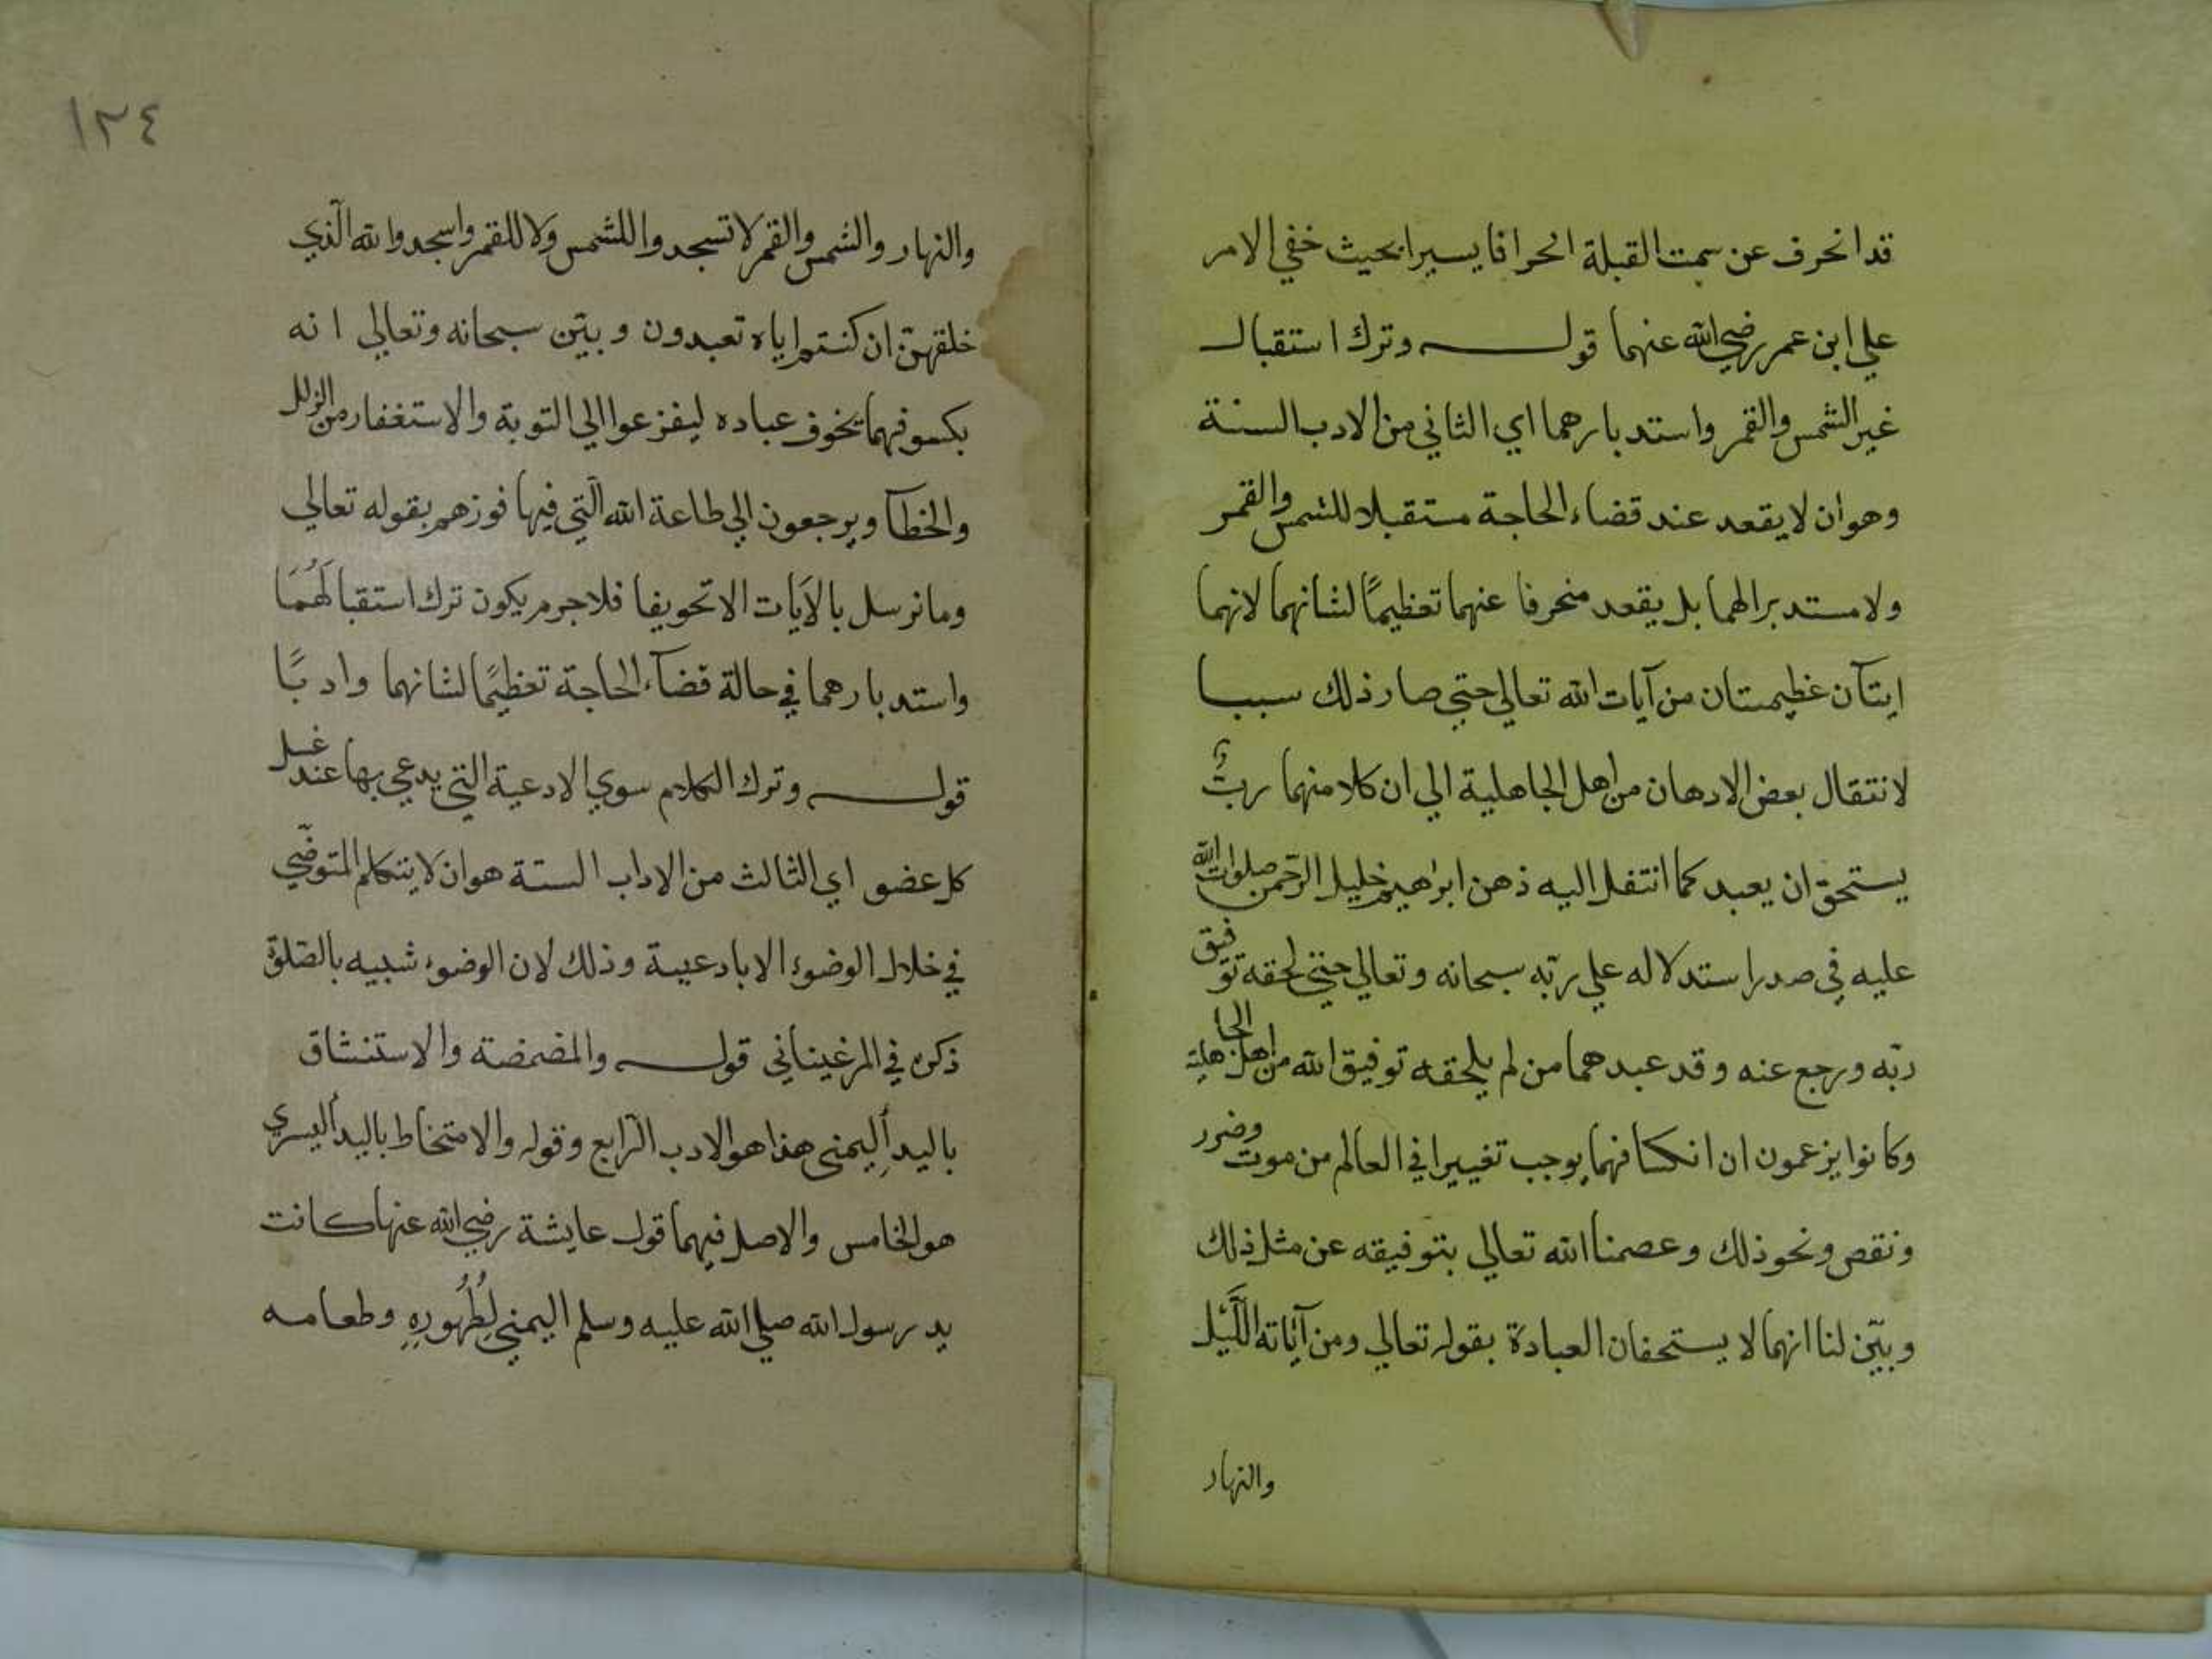 قد انحرف عن سمت القبلة انحرافا يسيرا بحيث خفي الامر
علي ابن عمر رضي الله عنهما قوله وترك استقبال
غير الشمس والقمر واستدبارهما اي الثاني من الادب السنة
وهو ان لا يقعد عند قضاء الحاجة مستقبلا للشمس والقمر
ولا مستدبرا لهما بل يقعد منحرفا عنهما تعظيمًا لشانهما لانهما
ايتآن عظيمتان من آيات الله تعالي حتي صار ذلك سببا
لانتقال بعض الادهان من اهل الجاهلية الي ان كلا منهما ربٌّ
يستحق ان يعبد كما انتقل اليه ذهن ابراهيم خليل الرحمن صلوات الله
عليه في صدر استدلاله علي ربّه سبحانه وتعالي حتي لحقه توفيق
ربّه ورجع عنه وقد عبدهما من لم يلحقه توفيق الله من اهل الجاهلية
وكانوا يزعمون ان انكسافهما يوجب تغييرا في العالم من موت وضرر
ونقص ونحو ذلك وعصمنا الله تعالي بتوفيقه عن مثل ذلك
وبيّن لنا انهما لا يستحقان العبادة بقوله تعالي ومن آياته اللّيل
والنهار
١٢٤
والنهار والشمس والقمر لا تسجدوا للشمس ولا للقمر واسجدوا لله الّذي
خلقهنّ ان كنتم اياه تعبدون وبيّن سبحانه وتعالي انه
بكسوفهما يخوف عباده ليفزعوا الي التوبة والاستغفار من الزلل
والخطآ ويرجعون الي طاعة الله الّتي فيها فوزهم بقوله تعالي
وما نرسل بالآيات الا تخويفا فلا جرم يكون ترك استقبالَهُمَا
واستدبارهما في حالة قضآء الحاجة تعظيمًا لشانهما وادبًا
قوله وترك الكلام سوي الادعية التي يدعي بها عند غسل
كل عضو اي الثالث من الاداب الستة هو ان لا يتكلم المتوضّي
في خلال الوضوء الا بادعيبة وذلك لان الوضوء شبيه بالصّلوة
ذكره في المرغيناني قوله والمضمضة والاستنشاق
باليد اليمني هذا هو الادب الرّابع وقوله والامتخاط باليد اليسري
هو الخامس والاصل فيهما قول عايشة رضي الله عنها كانت
يد رسول الله صلي الله عليه وسلم اليمني لِطُهُورِهِ وطعامه